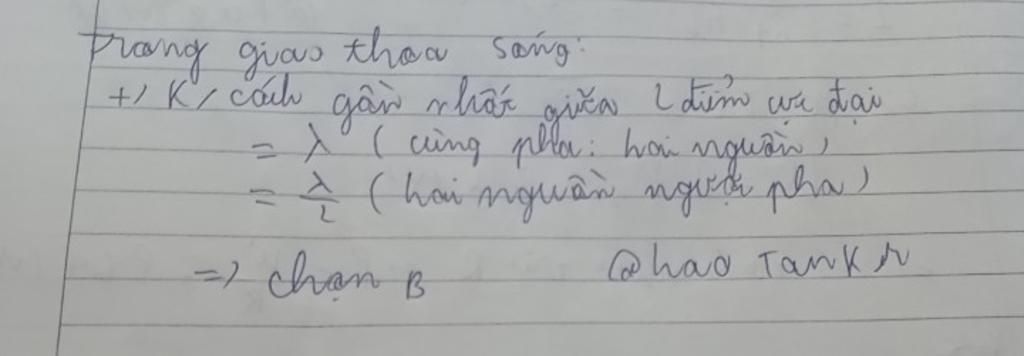 Trong giao thoa sóng:
+) K/cách gần nhất giữa 2 điểm cực đại
= λ (cùng pha: hai nguồn)
= λ/2 (hai nguồn ngược pha)
=) chọn B @hao Tank